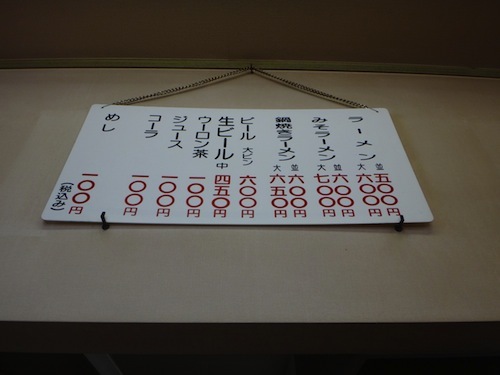 ラーメン 並 五〇〇円
大 六〇〇円
みそラーメン 並 六〇〇円
大 七〇〇円
鍋焼きラーメン 並 六〇〇円
大 六五〇円
ビール 大ビン 六〇〇円
生ビール 中 四五〇円
ウーロン茶 一〇〇円
ジュース 一〇〇円
コーラ 一〇〇円
めし 一〇〇円
(税込み)